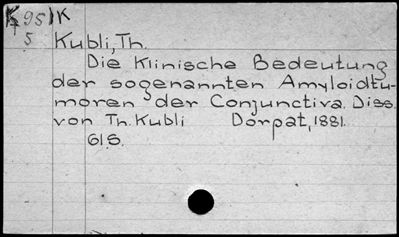 K951K
5 Kubli, Th.
Die Klinische Bedeutung
der sogenannten Amyloidtu-
moren der Conjunctiva. Diss.
von Th. Kubli Dorpat, 1881.
61 S.